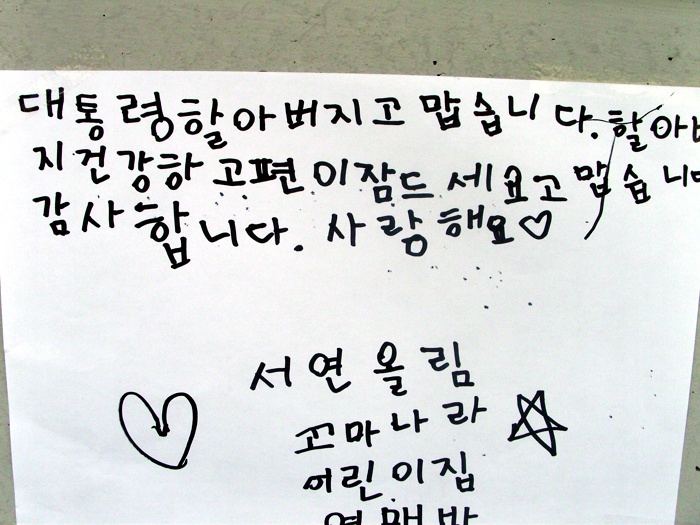 대통령할아버지고맙습니다.할아버
지건강하고편이잠드세요고맙습니다
감사합니다. 사랑해요♡
서연올림
꼬마나라
어린이집
열매반